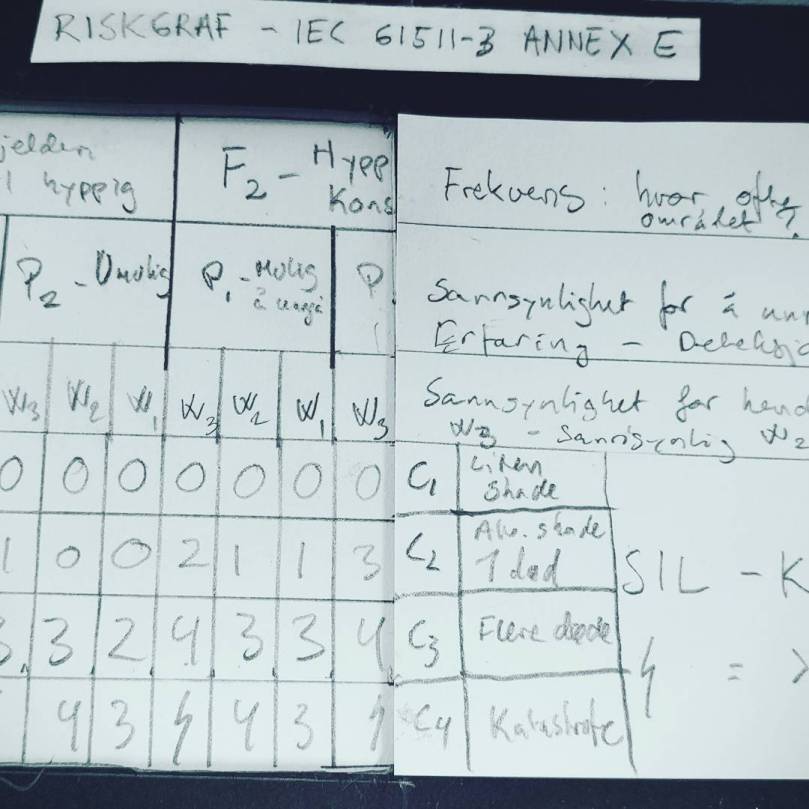 RISKGRAF - IEC 61511-3 ANNEX E
jelden
hyppig
F2 - Hypp
Kons
P2 - Umulig
P1 - Mulig
å unngå
P
W3 W2 W1 W3 W2 W1 W3
0 0 0 0 0 0 0
1 0 0 2 1 1 3
3 3 2 4 3 3 4
4 3 4 3
Frekvens: hvor ofte
området?
Sannsynlighet for å unn
Erfaring - Deteksjo
Sannsynlighet for hend
W3 - Sannsynlig W2
C1 Liten
skade
C2 Alv. skade
1 død
C3 Flere døde
C4 Katastrofe
SIL - K
= >